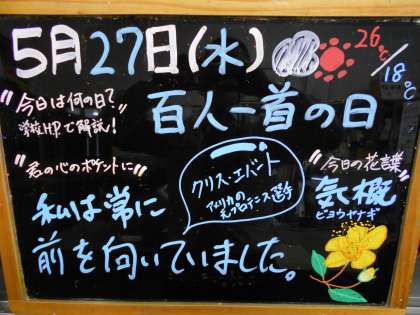 5月27日(水)
26℃/18℃
"今日は何の日?"
学校HPで解説!
百人一首の日
"君の心のポケットに"
私は常に
前を向いていました。
クリス・エバート
アメリカの
元プロテニス選手
"今日の花言葉"
気概
ビヨウヤナギ